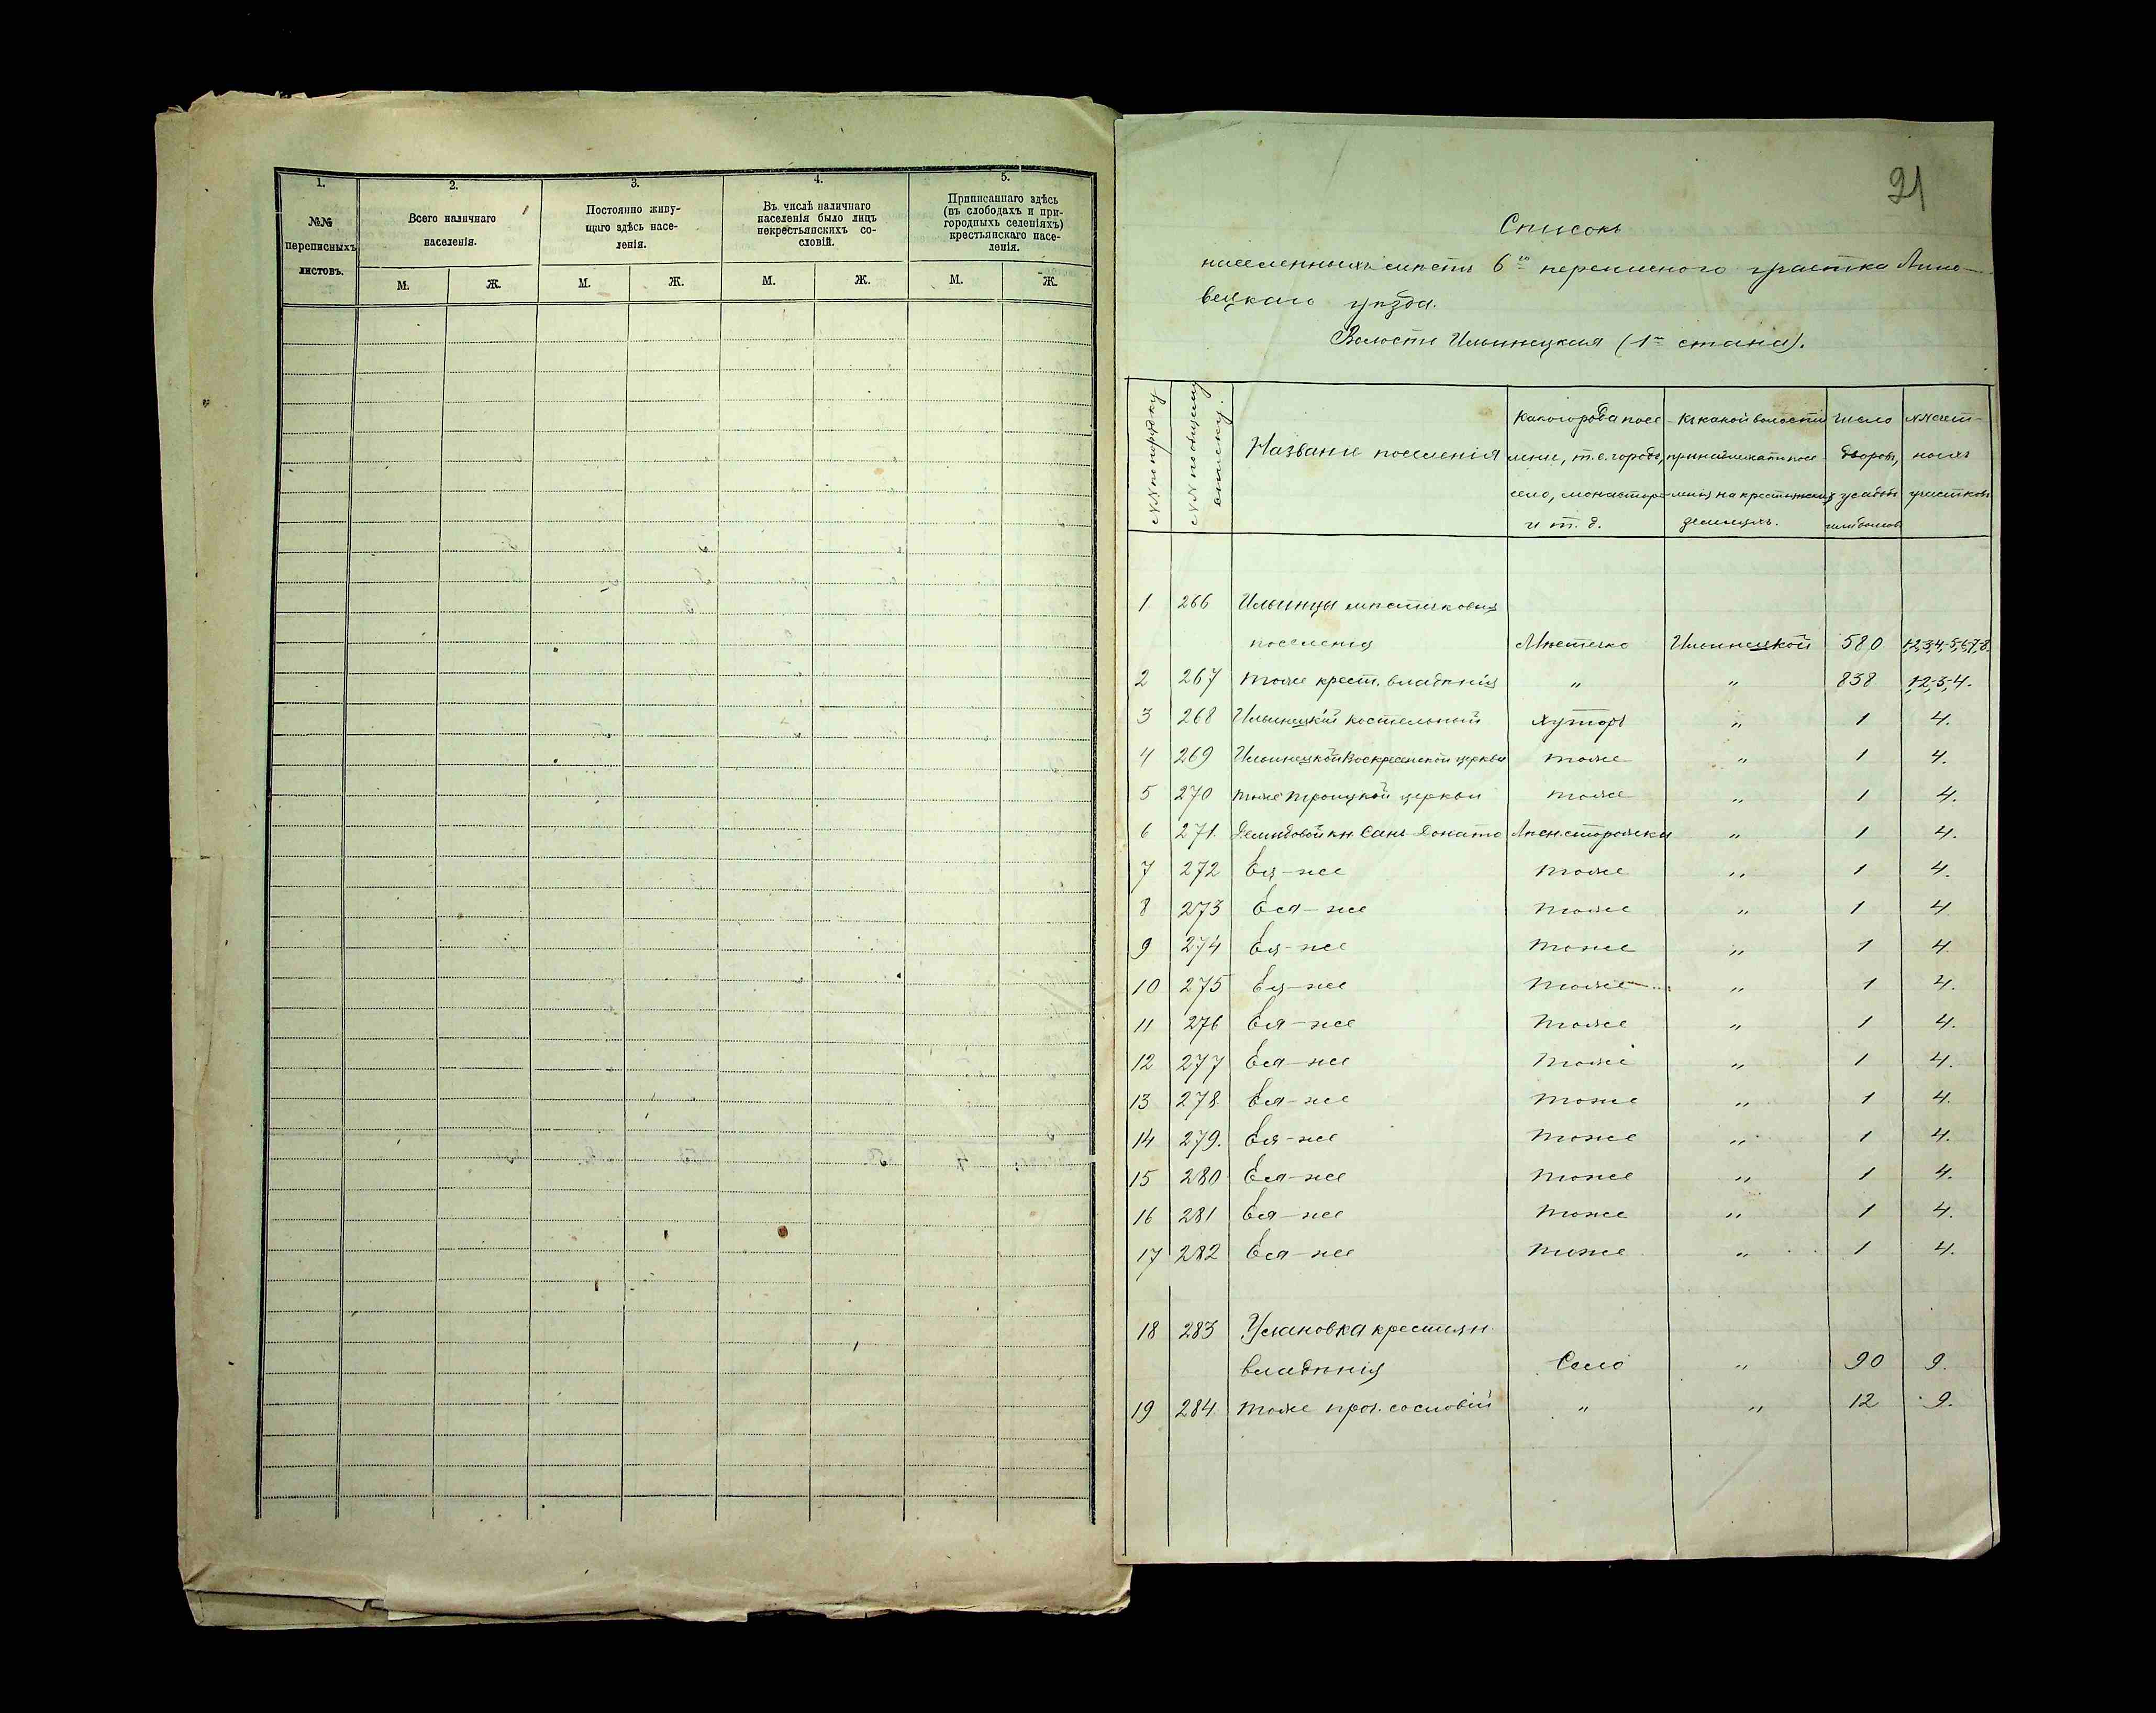 1. 2. 3. 4. 5.
№№ переписныхъ листовъ.
Всего наличнаго населенія.
Постоянно живу-
щаго здѣсь насе-
ленія.
Въ числѣ наличнаго
населенія было лицъ
некрестьянскихъ со-
словій.
Приписаннаго здѣсь
(въ слободахъ и при-
городныхъ селеніяхъ)
крестьянскаго насе-
ленія.
М. Ж. М. Ж. М. Ж. М. Ж.
21
Списокъ
населенныхъ мѣстъ 6го переписного участка Липо-
вецкаго уѣзда.
Волости Ильинецкая (1го стана).
№№ по порядку
№№ по общему
списку.
Названіе поселенія
Какого рода посе
леніе, т.е. городъ,
село, монастырь
и т. д.
Къ какой волости
принадлежатъ посе
ленія на крестьянскихъ
земляхъ.
Число
дворовъ,
усадьбъ
или домовъ
№№ счет-
ныхъ
участковъ
1 266 Ильинцы мѣстечковыя
поселенія Мѣстечко Ильинецкой 580 1,2,3,4,5,6,7,8.
2 267 тоже крест. владѣнія „ „ 838 1,2,3,4.
3 268 Ильинецкій костельный хуторъ „ 1 4.
4 269 Ильинецкой Воскресенской церкви тоже „ 1 4.
5 270 тоже Троицкой церкви тоже „ 1 4.
6 271. Демидовой кн. Санъ-Донато Лѣсн. сторожка „ 1 4.
7 272 Ея-же тоже „ 1 4.
8 273 Ея-же тоже „ 1 4
9 274 Ея-же тоже „ 1 4
10 275 Ея-же тоже „ 1 4.
11 276 Ея-же тоже „ 1 4.
12 277 Ея-же тоже „ 1 4.
13 278 Ея-же тоже „ 1 4.
14 279. Ея-же тоже „ 1 4.
15 280 Ея-же тоже „ 1 4.
16 281 Ея-же тоже „ 1 4.
17 282 Ея-же тоже „ 1 4.
18 283 Улановка крестьян.
владѣнія Село „ 90 9.
19 284 тоже проч. сословій „ „ 12 9.